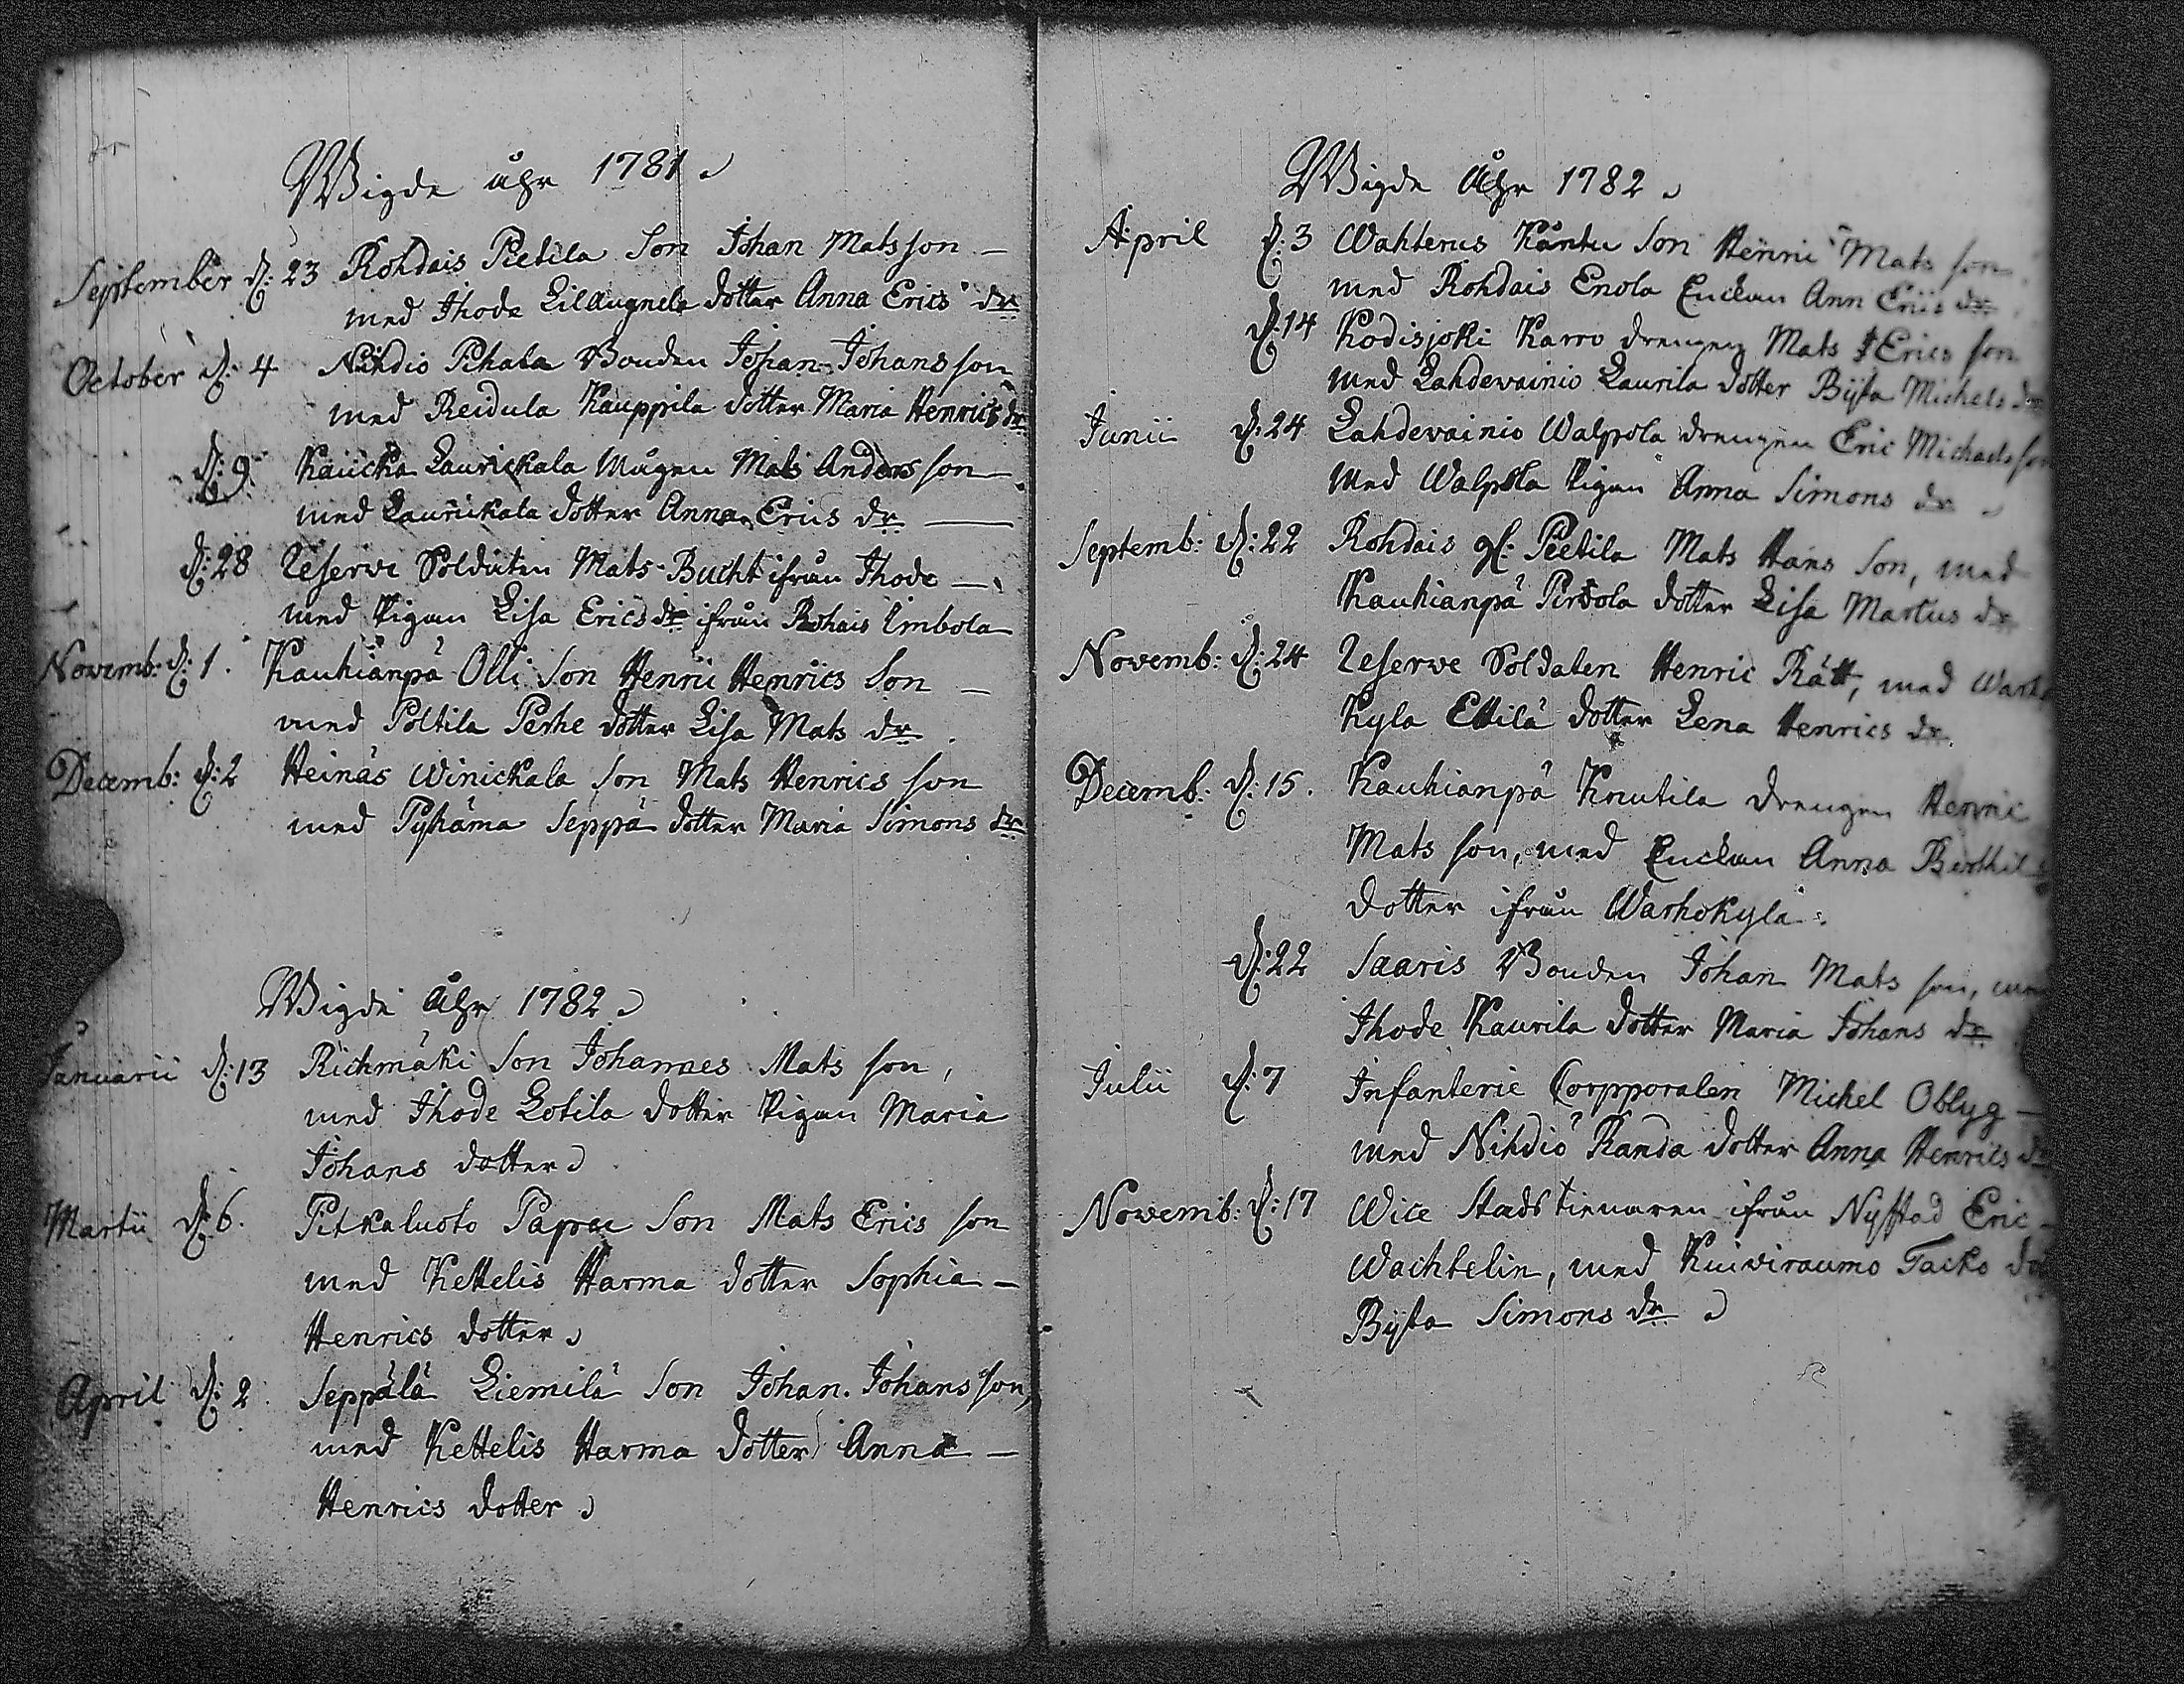 Wigde åhr 1781
September d: 23 Rohdais Pietila Son Johan Matsson —
med Ihode Lillaugnela dotter Anna Erics dr
October d: 4 Nihdio Pihala Bonden Johan Johansson
med Reidula Kauppila dotter Maria Henrics dr
d: 9 Kaucka Laurickala Mågen Mats Anders son
med Laurickala dotter Anna Erics dr —
d: 28 Reserve Soldaten Mats Bucht ifrån Ihode —
med Pigan Lisa Erics dr ifrån Rohais Simbola
Novemb: d: 1. Kauhianpä Olli Son Henric Henrics Son —
med Poltila Perhe dotter Lisa Mats dr
Decemb: d: 2 Heinäs Winickala Son Mats Henrics son
med Pyhäma Seppä dotter Maria Simons dr
Wigde Åhr 1782
Januarii d: 13 Richmäki Son Johannes Mats son,
med Ihode Lotila dotter Pigan Maria
Johans dotter
Martii d: 6. Pitkaluoto Papu Son Mats Erics son
med Kettelis Harma dotter Sophia —
Henrics dotter
April d: 2. Seppälä Liemilä Son Johan Johansson,
med Kettelis Harma dotter Anna —
Henrics dotter
Wigde Åhr 1782
April d: 3 Wahterus Käntu Son Henric Mats son
med Rohdais Enola Enckan Ann Erics dr
d: 14 Kodisjoki Karro drengen Mats Erics son
med Lahdevainio Laurila dotter Byta Michels dr
Junii d: 24 Lahdevainio Walpola drengen Eric Michaelsson
med Walpola Pigan Anna Simons dr
Septemb: d: 22 Rohdais gl: Pietila Mats Hans Son, med
Kauhianpä Pirtola dotter Lisa Martus dr
Novemb: d: 24 Reserve Soldaten Henric Rätt, med Warho
kyla Ettilä dotter Lena Henrics dr
Decemb: d: 15. Kauhianpä Knutila drengen Henric
Mats son, med Enckan Anna Berthils
dotter ifrån Warhokylä
d: 22 Saaris Bonden Johan Mats son, med
Ihode Kaurila dotter Maria Johans dr
Julii d: 7 Infanterie Corpporalen Michel Oblyg —
med Nihdiö Randa dotter Anna Henrics dr
Novemb: d: 17 Wice Stads tienaren ifrån Nystad Eric
Wachtelin, med Kuiviraumo Tacko
Byta Simons dr